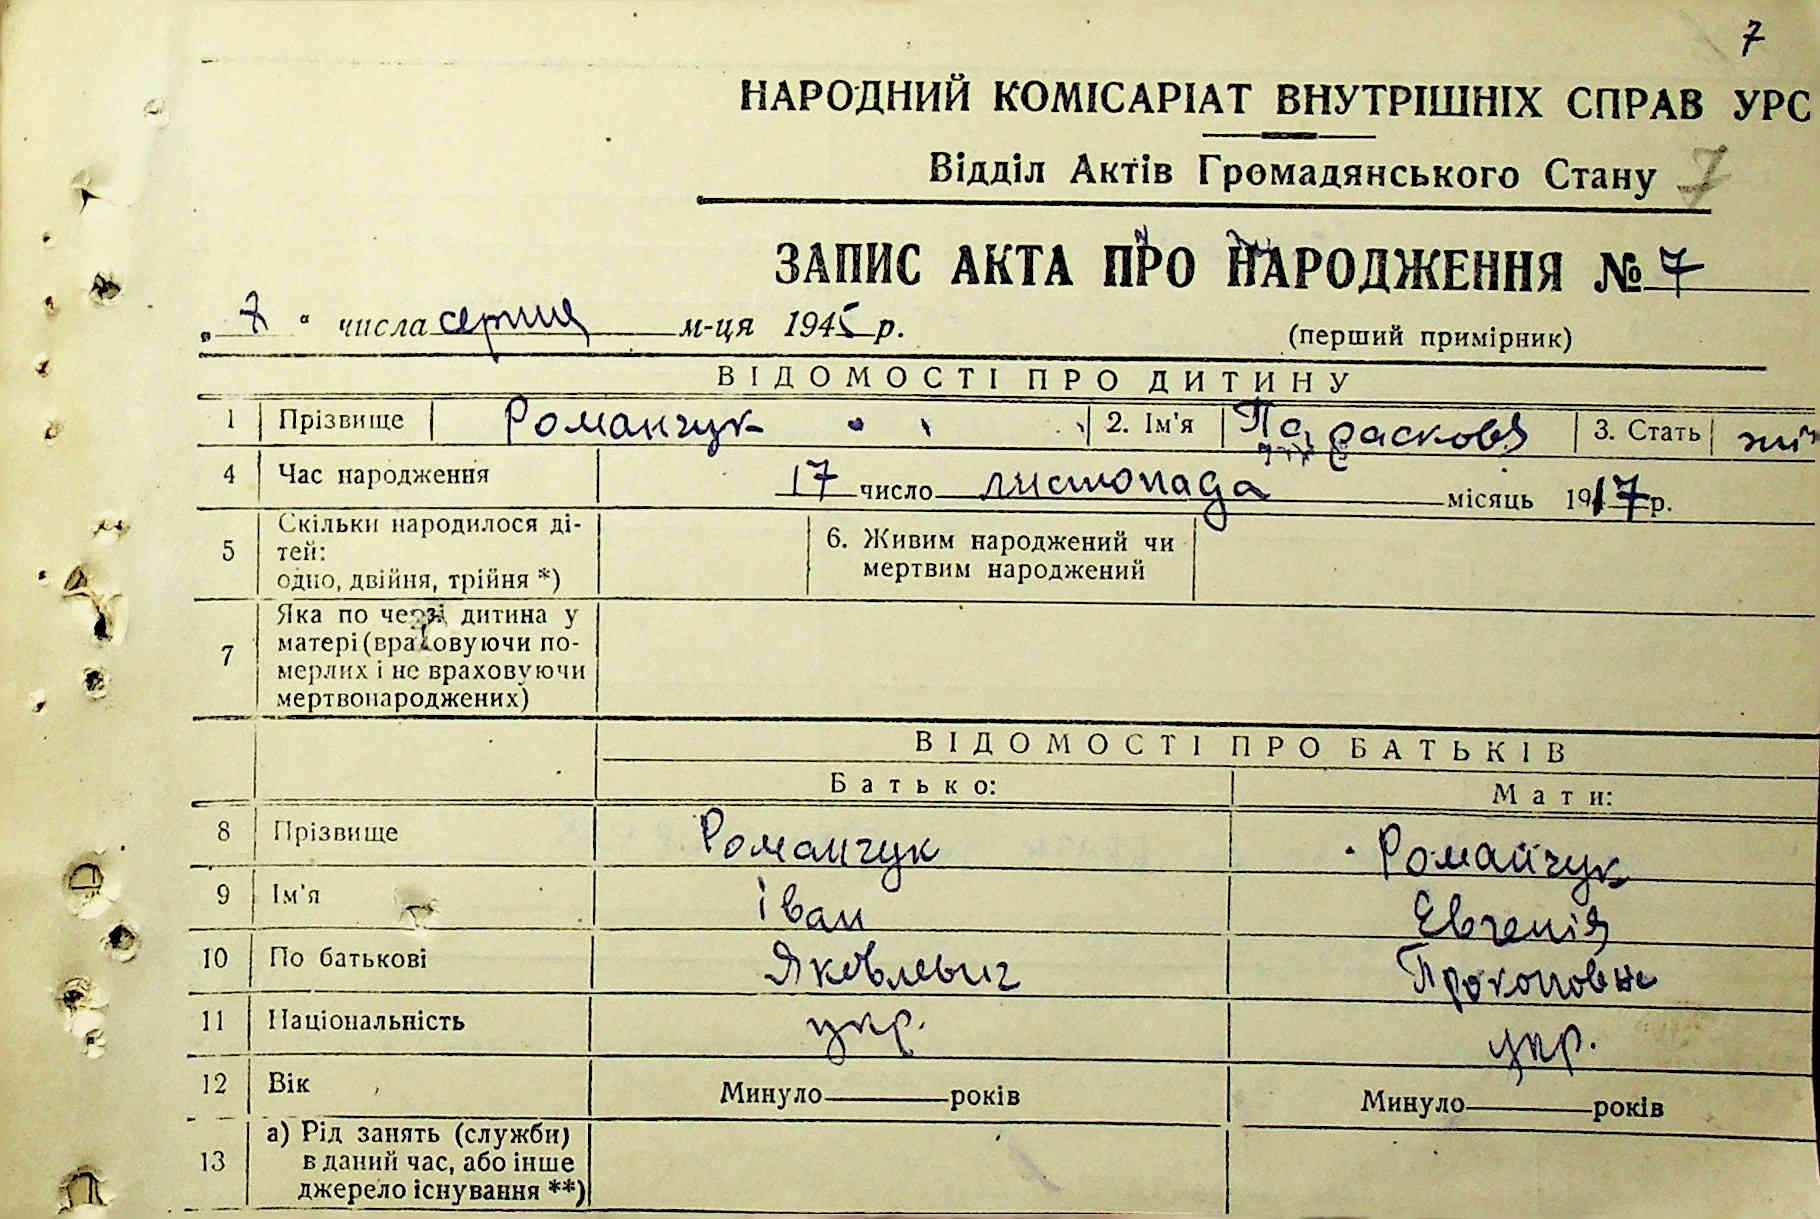 7
НАРОДНИЙ КОМІСАРІАТ ВНУТРІШНІХ СПРАВ УРС
Відділ Актів Громадянського Стану 7
ЗАПИС АКТА ПРО НАРОДЖЕННЯ № 7
„ 7 “ числа серпня м-ця 1945 р. (перший примірник)
ВІДОМОСТІ ПРО ДИТИНУ
1 Прізвище Романчук 2. Ім'я Парасковя 3. Стать
4 Час народження 17 число листопада місяць 1917 р.
5 Скільки народилося ді-
тей:
одно, двійня, трійня *)
6. Живим народжений чи
мертвим народжений
7 Яка по черзі дитина у
матері (враховуючи по-
мерлих і не враховуючи
мертвонароджених)
ВІДОМОСТІ ПРО БАТЬКІВ
Батько: Мати:
8 Прізвище Романчук Романчук
9 Ім'я Іван Евгенія
10 По батькові Яковлевич Прокоповна
11 Національність укр. укр.
12 Вік Минуло років Минуло років
13 а) Рід занять (служби)
в даний час, або інше
джерело існування **)